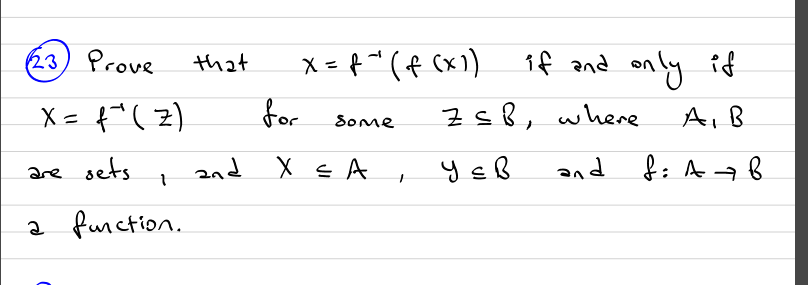 23 Prove that X = f⁻¹(f(X)) if and only if
X = f⁻¹(Z) for some Z ⊆ B, where A, B
are sets, and X ⊆ A, Y ⊆ B and f: A → B
a function.